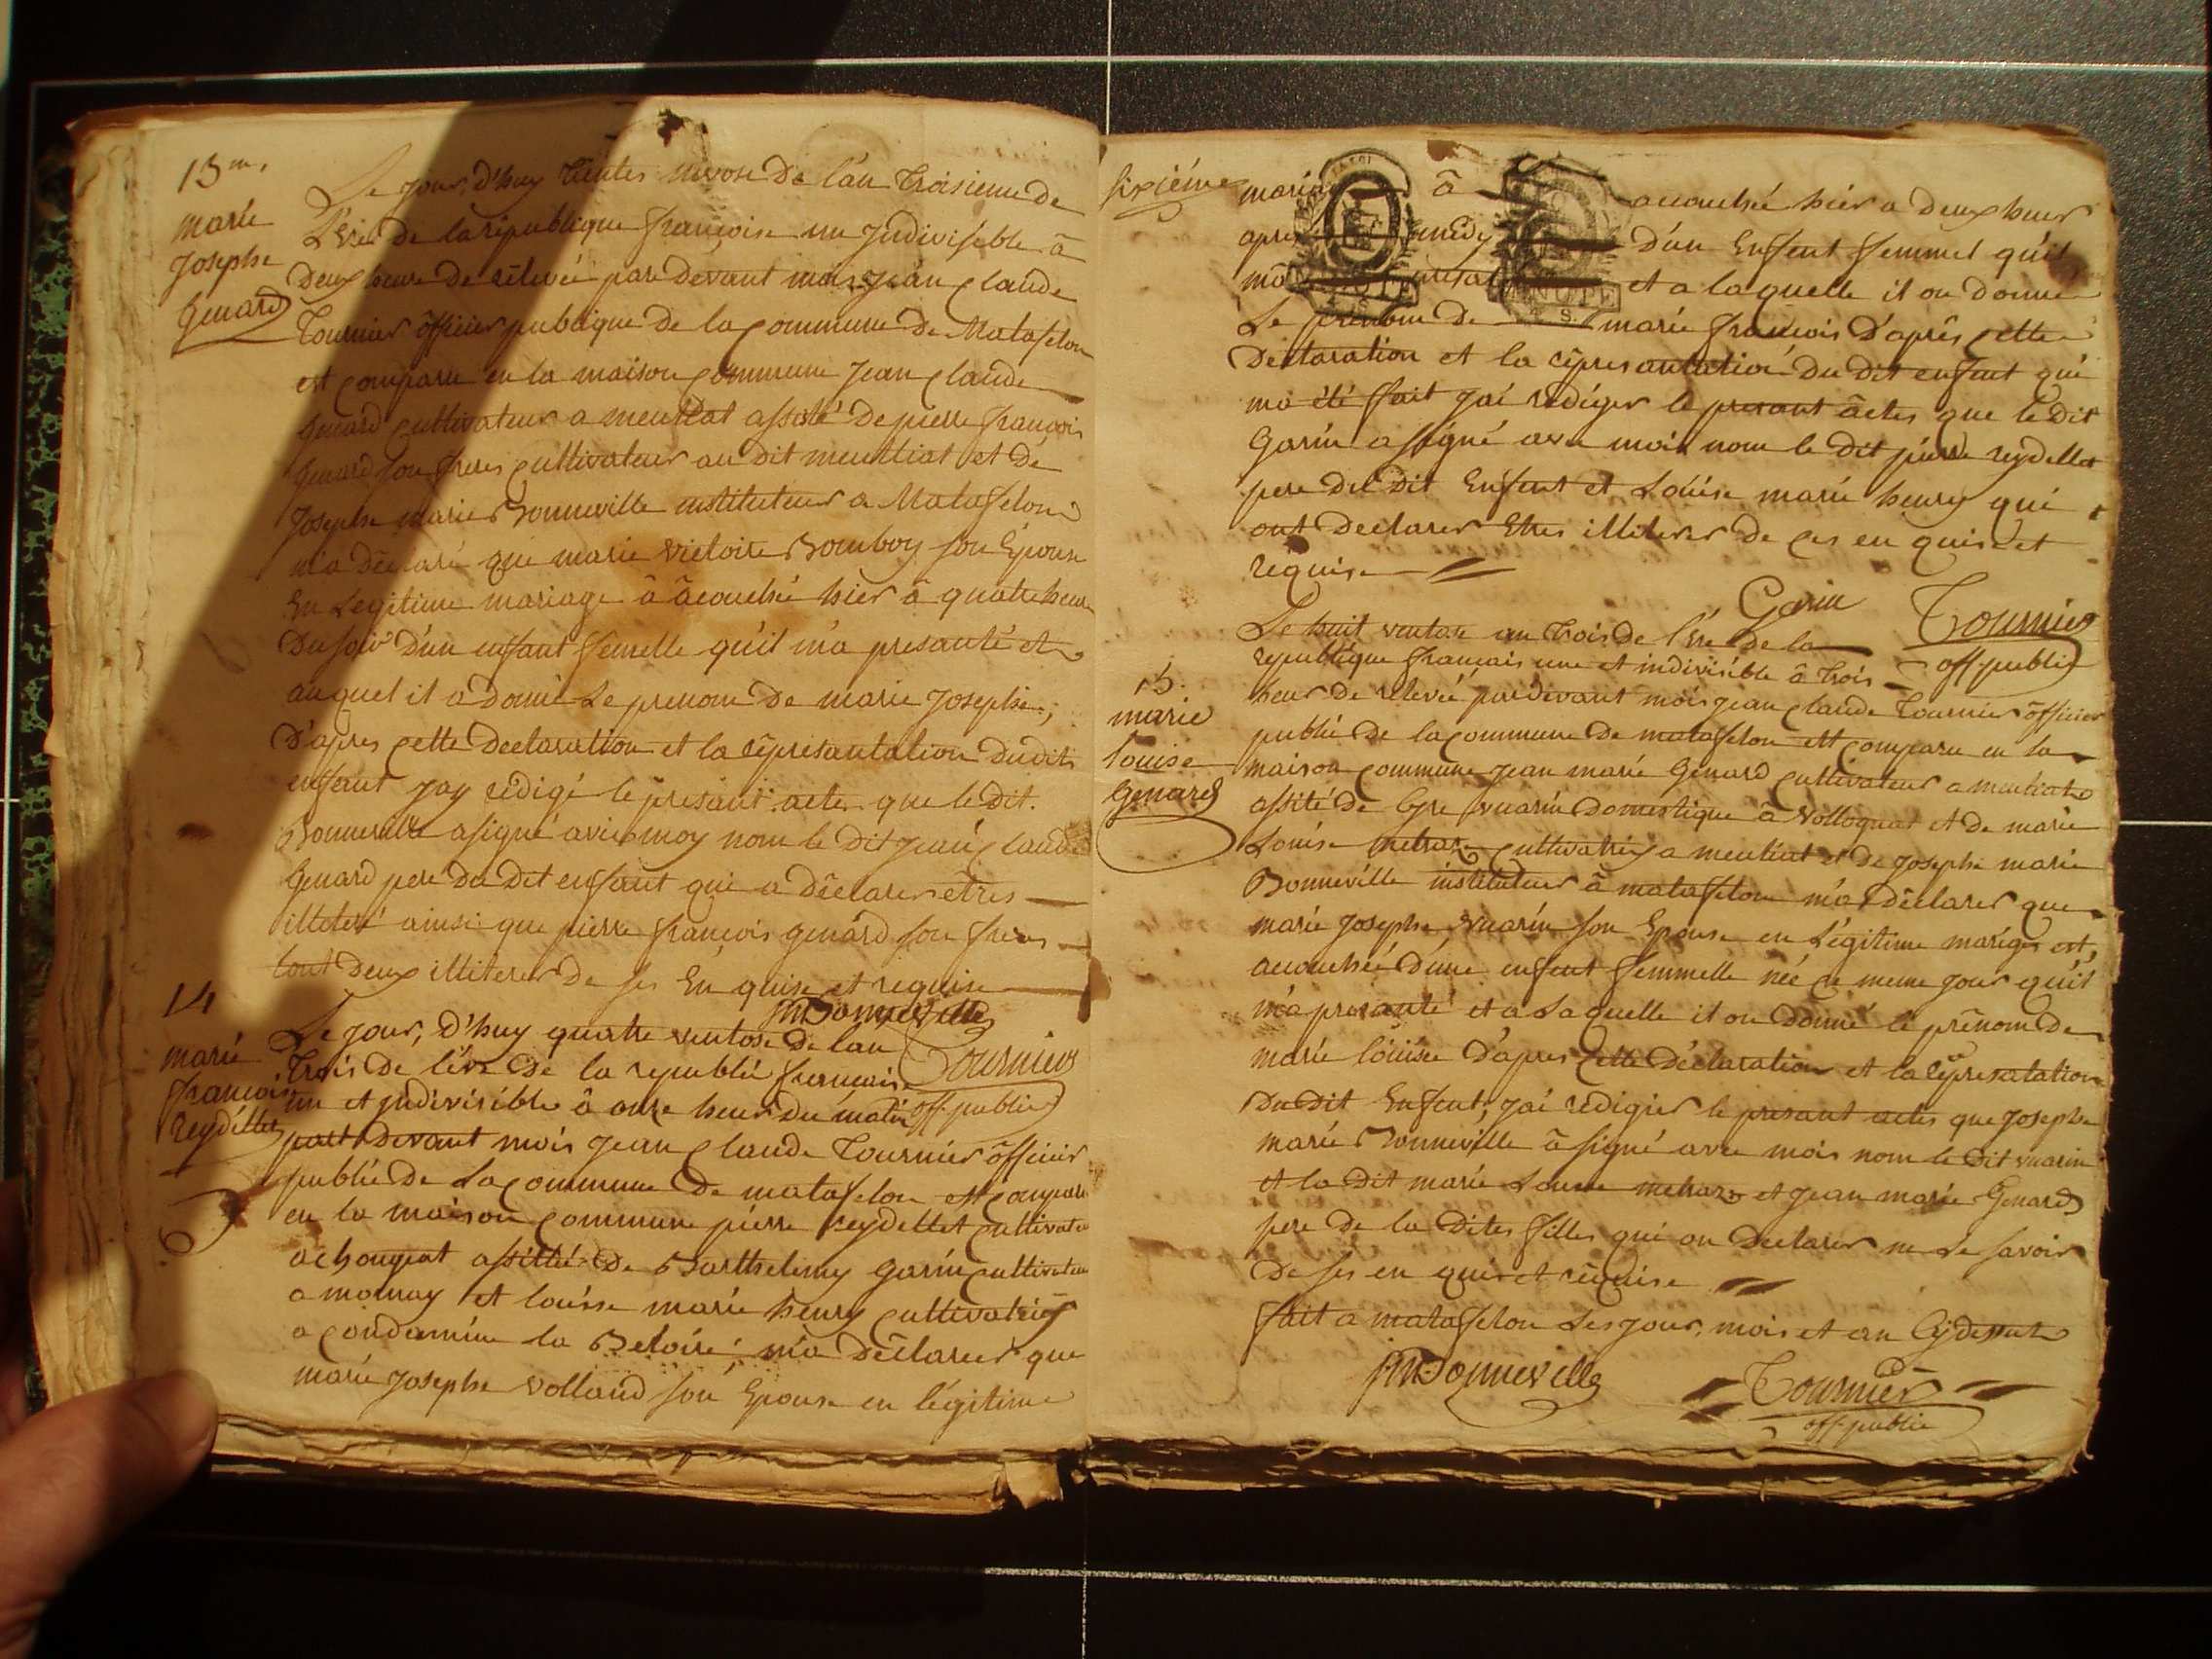 13me
marie
Josephe
Genard
Le jour d'huy trentes nivose de l'an troisieme de
L'Ere de la republique françoise un Jndivisible â
deux heure de relevée par devant moi jean Claude
Tournier ôfficier publique de la Commune de Matafelon
est comparu en la maison commune jean Claude
Genard cultivateur a mentiat assisté de pierre françois
Genard son freres cultivateur au dit mentiat et de
Josephe marie Bonneville instituteur a Matafelon
m'a déclaré que marie victoire Bomboy son Epouse
En Legitime mariage â âcouché hier â quatre heure
Du soir d'un enfant femelle qu'il m'a presanté et
auquel il a donné Le prenom de marie josephe;
D'apres cette declaration et la réprésantation dudit
enfant jay rédigé le présant acte que le dit.
Bonneville a signé avec moy nom le dit jean Claude
Genard pere du dit enfant qui a déclarer êtres
illeteré ainsi que pierre françois genard son freres
tout deux illiterer de ses En quise et requise
JmBonneville
Tournier
off. public
14
marie
françois
reydellet
Le jour, d'huy quatre ventose de l'an
trois de l'ére de la republié françaisse
un et jndivisible â onze heur du matin
part devant mois jean Claude Tournier ôfficier
publié de La commune de matafelon est comparu
en la maison commune piérre reydellet cultivateur
a chougeat assisté de Barthelemy Garin cultivateur
a mornay et louisse marie henry cultivatrice
a condamine la Beloire m'a déclarer que
marie josephe volland son Epouse en légitime
sixiéme
mariage â acouché hier a deux heur
apres midy D'un Enfent femmel qu'il
et a laquelle il on donné
Le prénom de marie françois D'aprés cette
Déclaration et la répresantation du dit enfent qui
ma été fait jai rédiger le presant âctes que le dit
Garin a signé avec mois nom le dit piérre reydellet
pere du dit Enfent et Loüise marie henry qui
ont declarer Etres illiterer de ces en quise et
requise
Garin
Tournier
off. public
15.
marie
louise
Genard
Le huit ventose an trois de l'Ere de la
republique français une et indivisible â trois
heur de relevée pardevant mois jean Claude Tournier ôfficier
publié de la commune de matafelon est comparu en la
maison commune jean marie Genard cultivateur a mentiat
assité de Cyre vuarin domestique â Vollognat et de marie
Louise metraz cultivatrice a mentiat et de josephe marie
Bonneville instituteur â matafelon m'a déclarer que
marie josephe vuarin son Epouse en Légitime mariges est,
acouchée d'une enfent femmelle née ce meme jour qu'il
m'a presanté et a Laquelle il on donné le prénom de
marie loüise D'apres Cette déclaration et la répresatation
Du dit Enfent, jai rédigier le presant actes que josephe
marie Bonneville â signé avec mois nom le dit vuarin
et la dit marie Louise metraz et jean marie Genard
pere de la dites filles qui on declarer ne Le savoir
De ses en quis et réquise
fait a matafelon Les jour, mois et an Cydessut
JmBonneville
Tournier
off. public